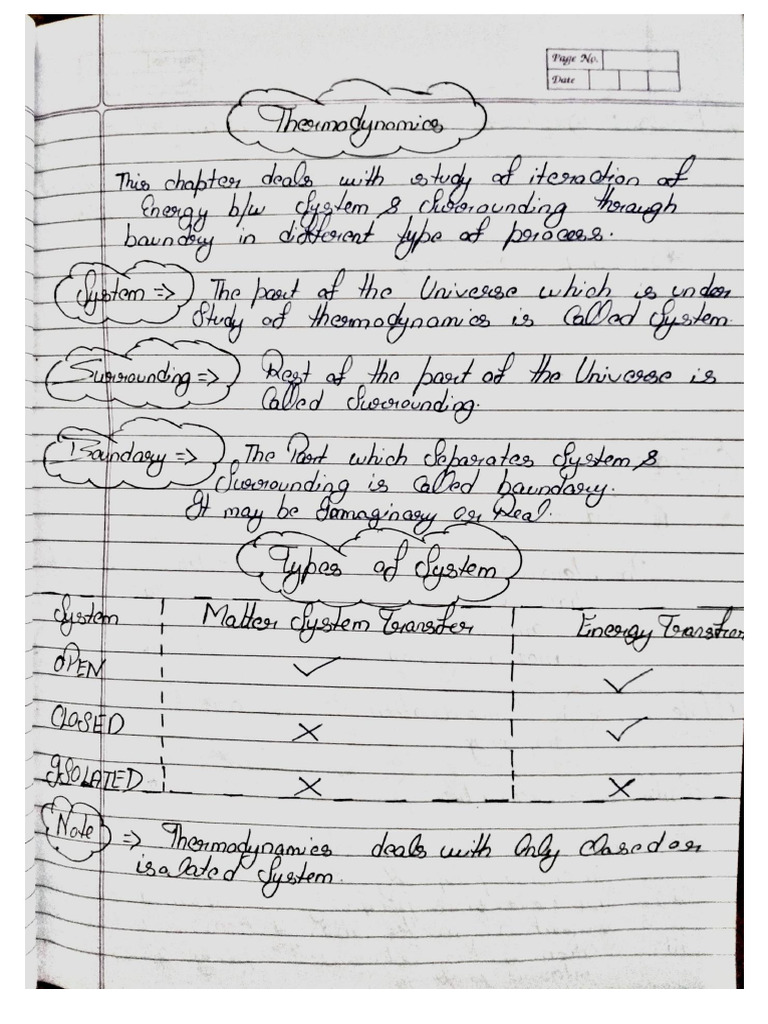 Page No.
Date
Thermodynamics
This chapter deals with study of iteraction of
Energy b/w System & Surrounding through
baundry in different type of process.
System => The part of the Universe which is under
Study of thermodynamics is Called System.
Surrounding => Rest of the part of the Universe is
Called Surrounding.
Boundary => The Part which Separates System &
Surrounding is Called boundary.
It may be Iamaginary or Real.
Types of System
System Matter System Transfer Energy Transfer
OPEN ✓ ✓
CLOSED × ✓
ISOLATED × ×
Note => Thermodynamics deals with Only Closed or
isolated System.